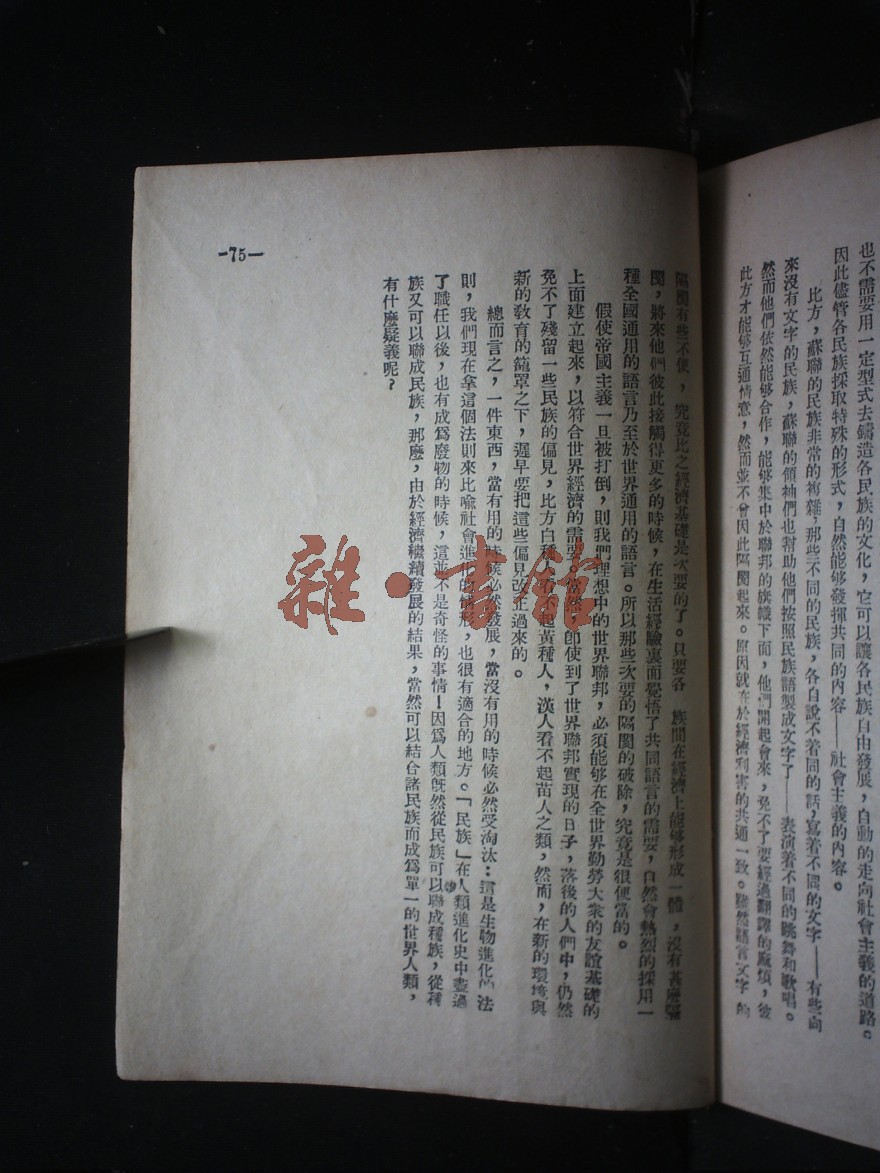 也不需要用一定型式去鑄造各民族的文化，它可以讓各民族自由發展，自動的走向社會主義的道路。
因此儘管各民族採取特殊的形式，自然能够發揮共同的內容——社會主義的內容。
比方，蘇聯的民族非常的複雜，那些不同的民族，各自說不着同的話，寫着不同的文字——有些向
來沒有文字的民族，蘇聯的領袖們也幫助他們按照民族語製成文字了——表演着不同的跳舞和歌唱。
然而他們依然能够合作，能够集中於聯邦的旗幟下面，他們開起會來，免不了要經過翻譯的麻煩，彼
此方才能够互通情意，然而並不會因此隔閡起來。原因就在於經濟利害的共通一致。雖然語言文字的
隔閡有些不便，究竟比之經濟基礎是次要的了。只要各 族間在經濟上能够形成一體，沒有甚麼隔
閡，將來他們彼此接觸得更多的時候，在生活經驗裏面覺悟了共同語言的需要，自然會熱烈的採用一
種全國通用的語言乃至於世界通用的語言。所以那些次要的隔閡的破除，究竟是很便當的。
假使帝國主義一旦被打倒，則我們理想中的世界聯邦，必須能够在全世界勤勞大衆的友誼基礎的
上面建立起來，以符合世界經濟的需要。當然，卽使到了世界聯邦實現的日子，落後的人們中，仍然
免不了殘留一些民族的偏見，比方白種人看不起黃種人，漢人看不起苗人之類，然而，在新的環境與
新的敎育的籠罩之下，遲早要把這些偏見改正過來的。
總而言之，一件東西，當有用的時候必然發展，當沒有用的時候必然受淘汰：這是生物進化的法
則，我們現在拿這個法則來比喩社會進化的情形，也很有適合的地方。「民族」在人類進化史中盡過
了職任以後，也有成爲廢物的時候，這並不是奇怪的事情！因爲人類旣然從民族可以聯成種族，從種
族又可以聯成民族，那麼，由於經濟繼續發展的結果，當然可以結合諸民族而成爲單一的世界人類，
有什麼疑義呢？
-75-
雜·書館